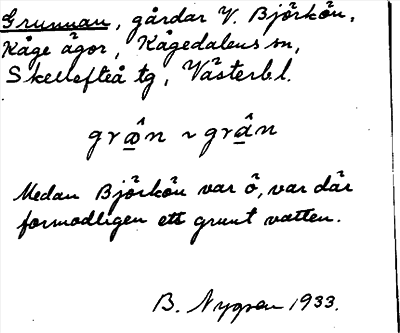 Grunnan, gårdar V. Björkön,
Kåge ägor, Kågedalens sn,
Skellefteå tg, Västerb.l.
grω̲̂n ~ grâ̲n
Medan Björkön var ö, var där
formodligen ett grunt vatten.
B. Nygren 1933.